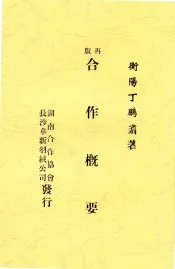 衡陽丁鵬翥著
再版
合作概要
湖南合作協會
長沙華新羽絨公司
發行